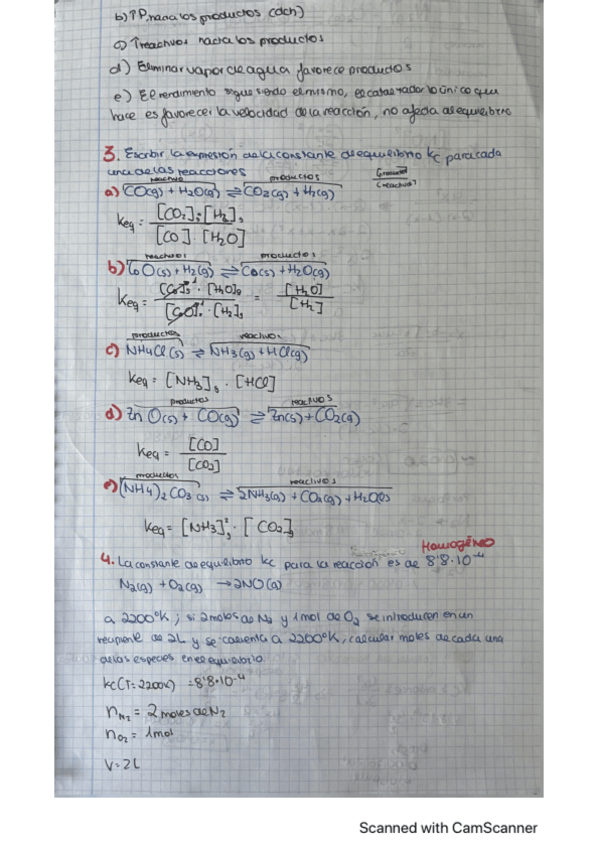 b) ↑P, hacia los productos (dch)
c) ↑reactivos hacia los productos
d) Eliminar vapor de agua favorece productos
e) El rendimiento sigue siendo el mismo, el catalizador lo único que
hace es favorecer la velocidad de la reacción, no afecta al equilibrio
3. Escribir la expresión de la constante de equilibrio Kc para cada
una de las reacciones
reactivo productos [productos] [reactivos]
a) CO(g) + H2O(g) ⇌ CO2(g) + H2(g)
Keq = [CO2] · [H2] / [CO] · [H2O]
reactivos productos
b) CoO(s) + H2(g) ⇌ Co(s) + H2O(g)
Keq = [Co] · [H2O] / [CoO] · [H2] = [H2O] / [H2]
productos reactivos
c) NH4Cl(s) ⇌ NH3(g) + HCl(g)
Keq = [NH3] · [HCl]
productos reactivos
d) ZnO(s) + CO(g) ⇌ Zn(s) + CO2(g)
Keq = [CO] / [CO2]
productos reactivos
e) (NH4)2CO3(s) ⇌ 2NH3(g) + CO2(g) + H2O(l)
Keq = [NH3]² · [CO2]
Homogéneo
4. La constante de equilibrio Kc para la reacción es de 8'8·10⁻⁴
N2(g) + O2(g) → 2NO(g)
a 2200ºK; si 2 moles de N2 y 1 mol de O2 se introducen en un
recipiente de 2L y se calienta a 2200ºK, calcular moles de cada una
de las especies en el equilibrio
Kc (T=2200K) = 8'8·10⁻⁴
nN2 = 2 moles de N2
nO2 = 1 mol
V = 2L
Scanned with CamScanner